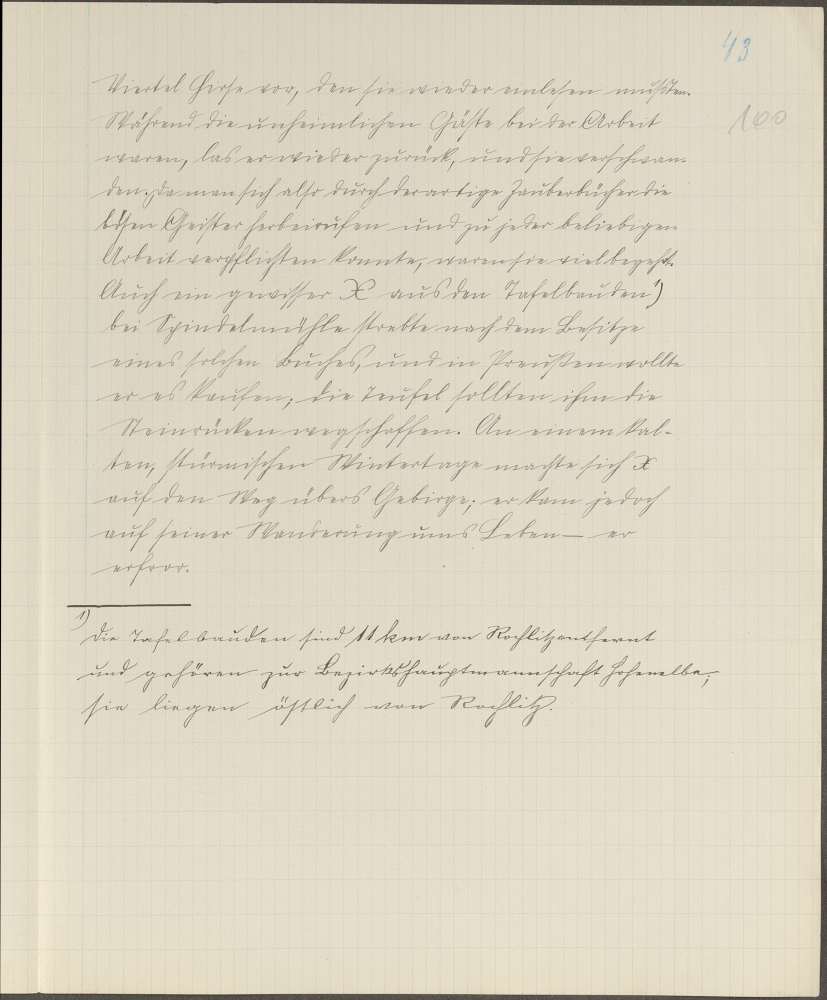 43
100
Viertel Hirse vor, den sie wieder einlesen mußten.
Während die unheimlichen Gäste bei der Arbeit
waren, las er wieder zurück, und sie verschwan-
den. Da man sich also durch derartige Zauberbücher die
bösen Geister herbeirufen und zu jeder beliebigen
Arbeit verpflichten konnte, waren sie viel begehrt.
Auch ein gewisser X aus den Tafelbauden 1)
bei Spindelmühle strebte nach dem Besitze
eines solchen Buches, und in Preußen wollte
er es kaufen; die Teufel sollten ihm die
Steinrücken wegschaffen. An einem kal-
ten, stürmischen Wintertage machte sich X
auf den Weg übers Gebirge; er kam jedoch
auf seiner Wanderung ums Leben — er
erfror.
1)
Die Tafelbauden sind 11 km von Rochlitz entfernt
und gehören zur Bezirkshauptmannschaft Hohenelbe;
sie liegen östlich von Rochlitz.